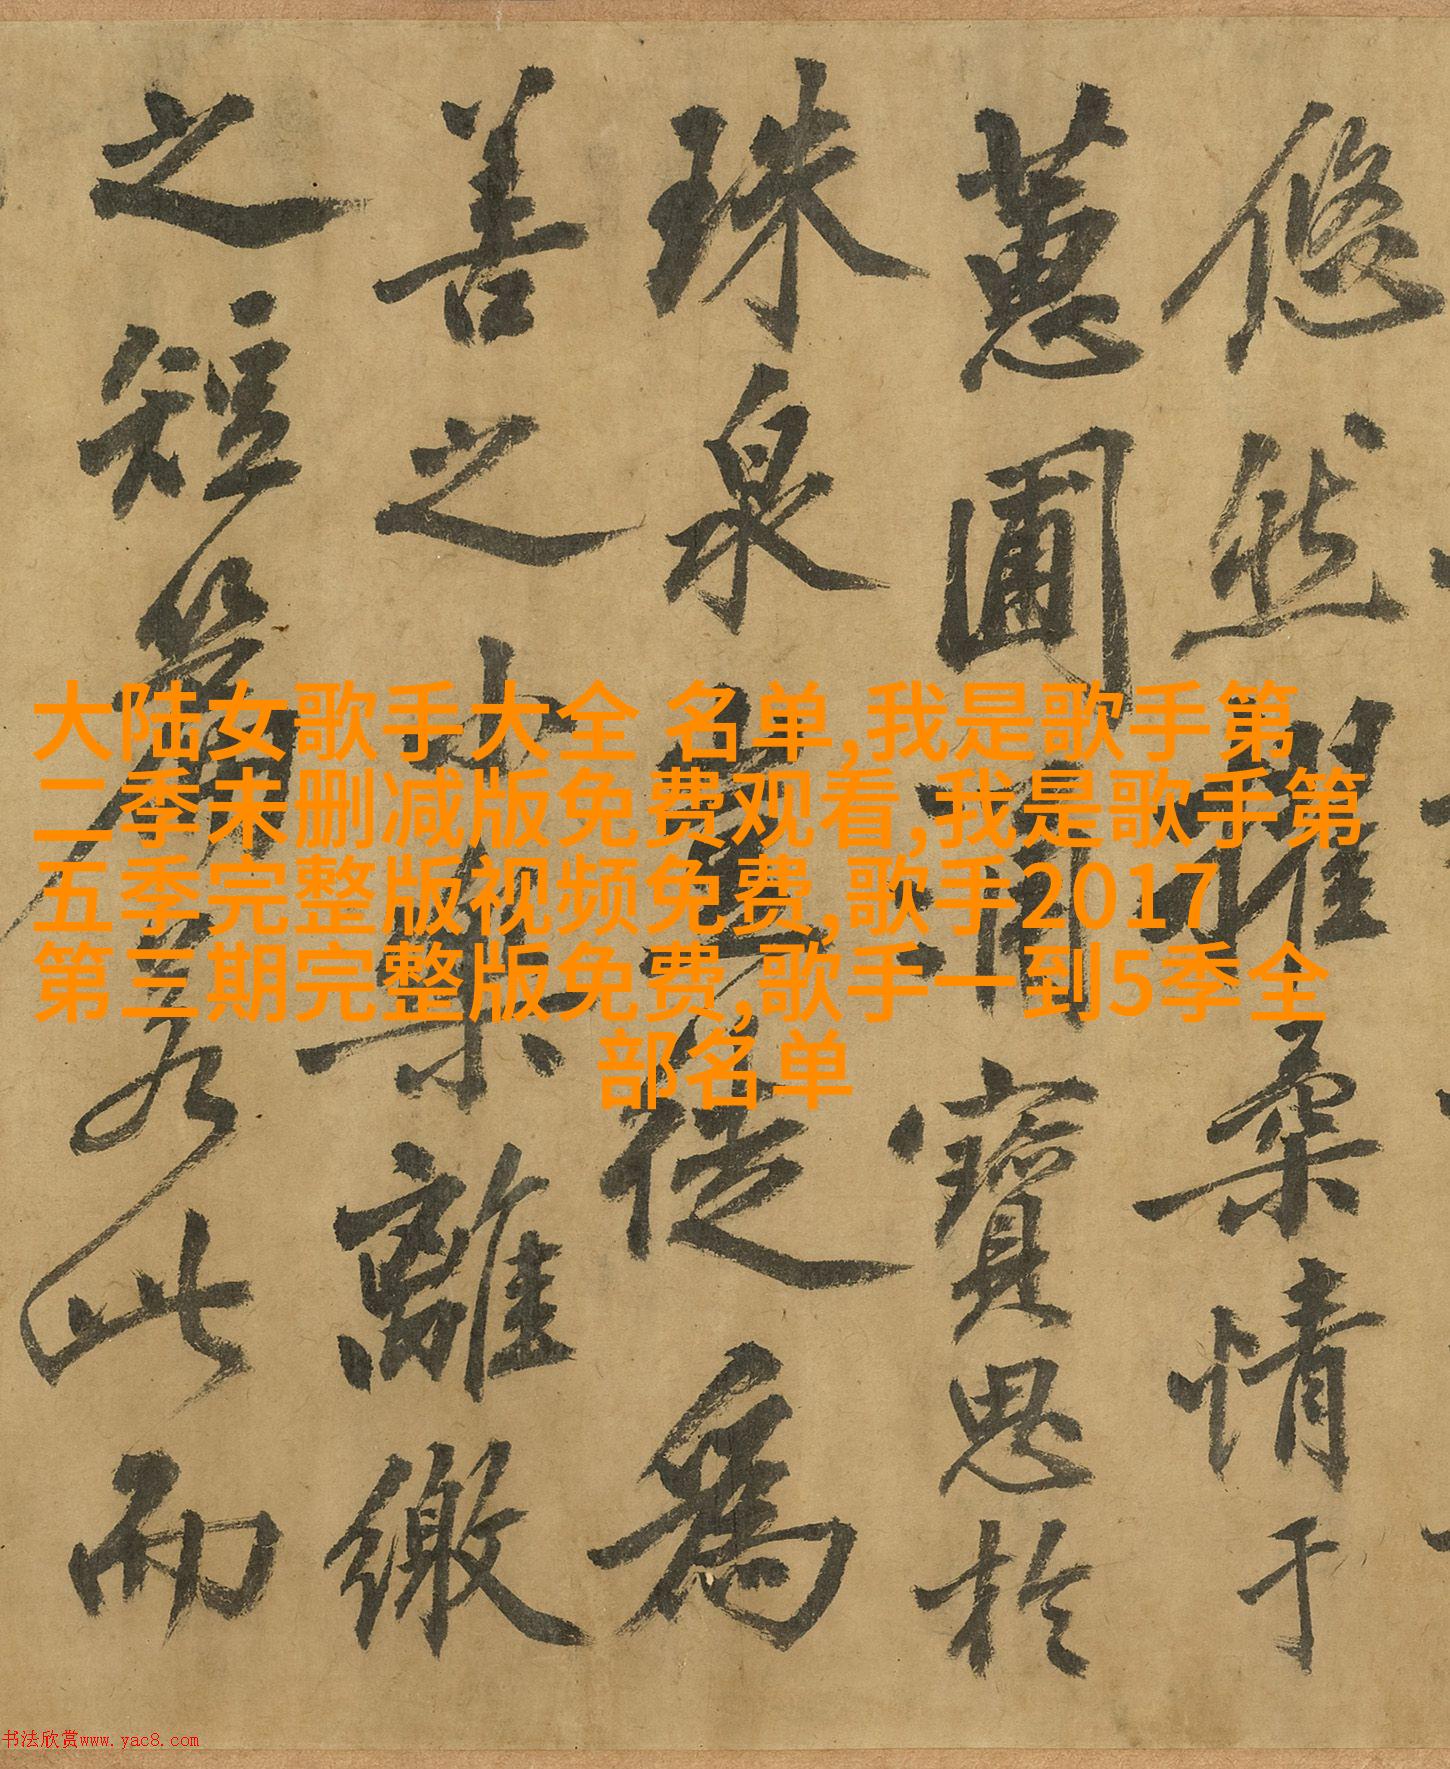 悠然耀桑情于
蕙圃寶思於
珠泉從為
善之離繳
之短若此而
大陆女歌手大全 名单,我是歌手第
二季未删减版免费观看,我是歌手第
五季完整版视频免费,歌手2017
第三期完整版免费,歌手一到5季全
部名单
书法欣赏www.yac8.com